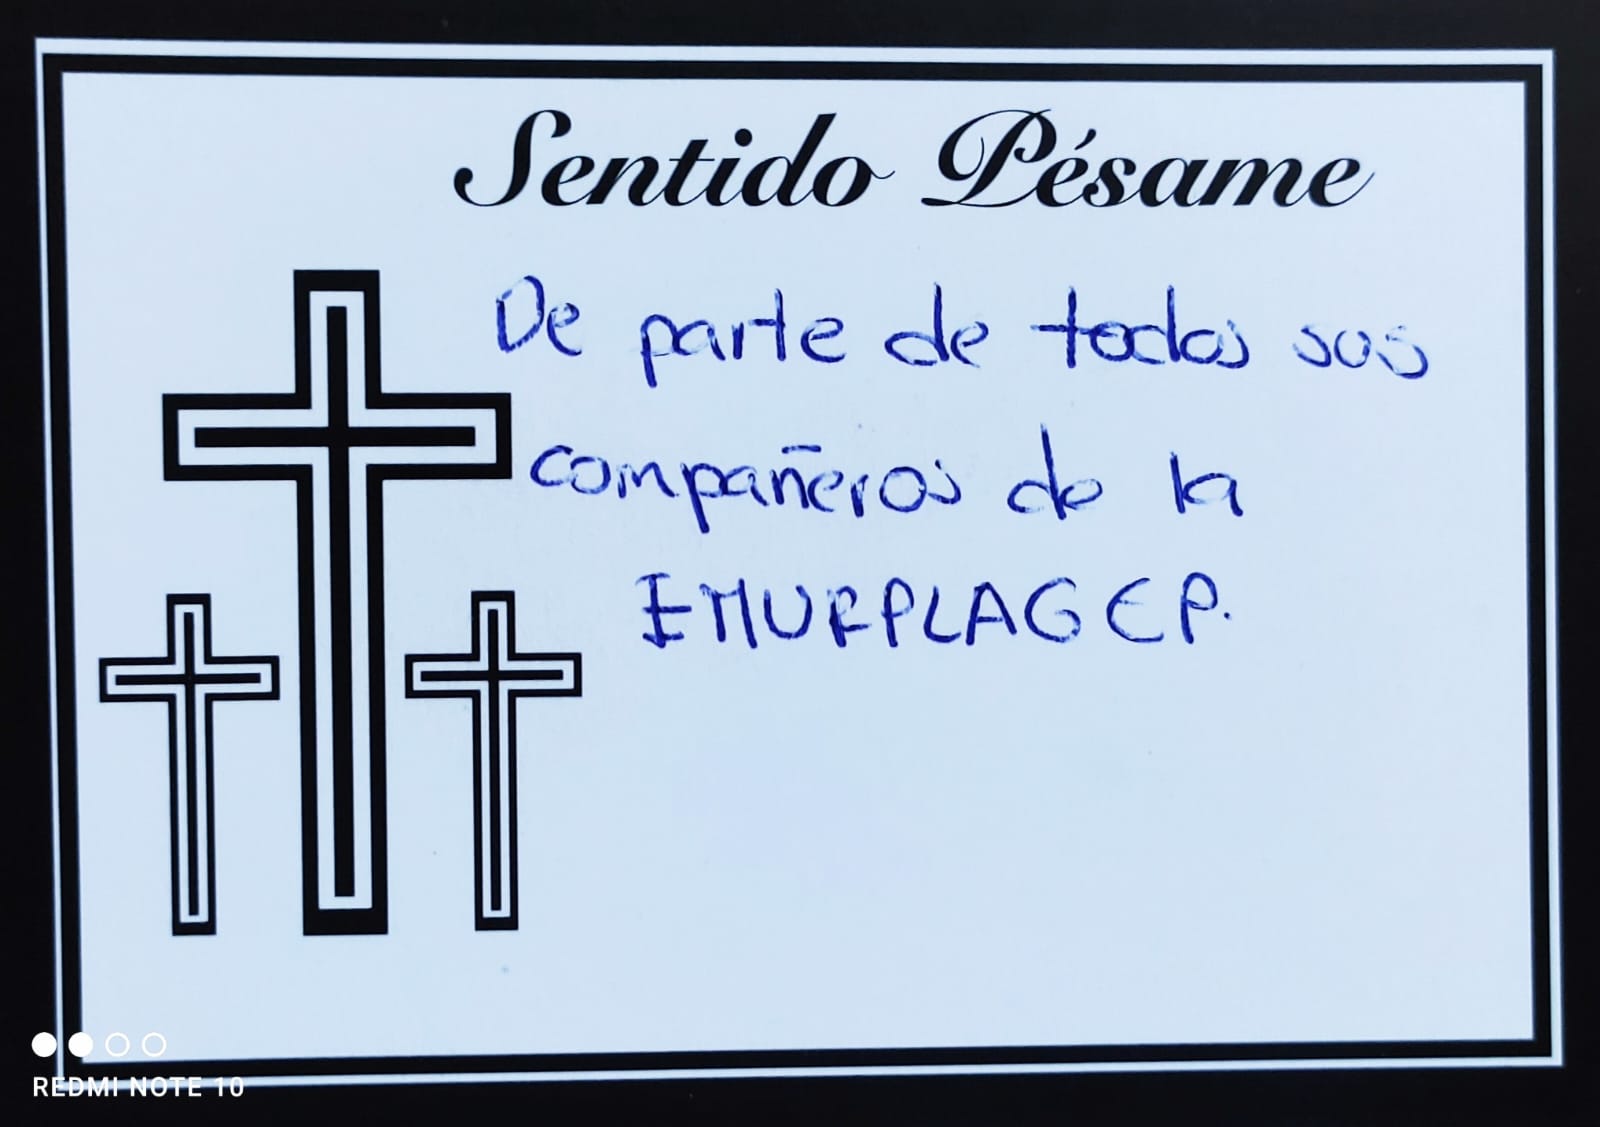 Sentido Pésame
De parte de todos sus
compañeros de la
EMURPLAG EP.
REDMI NOTE 10